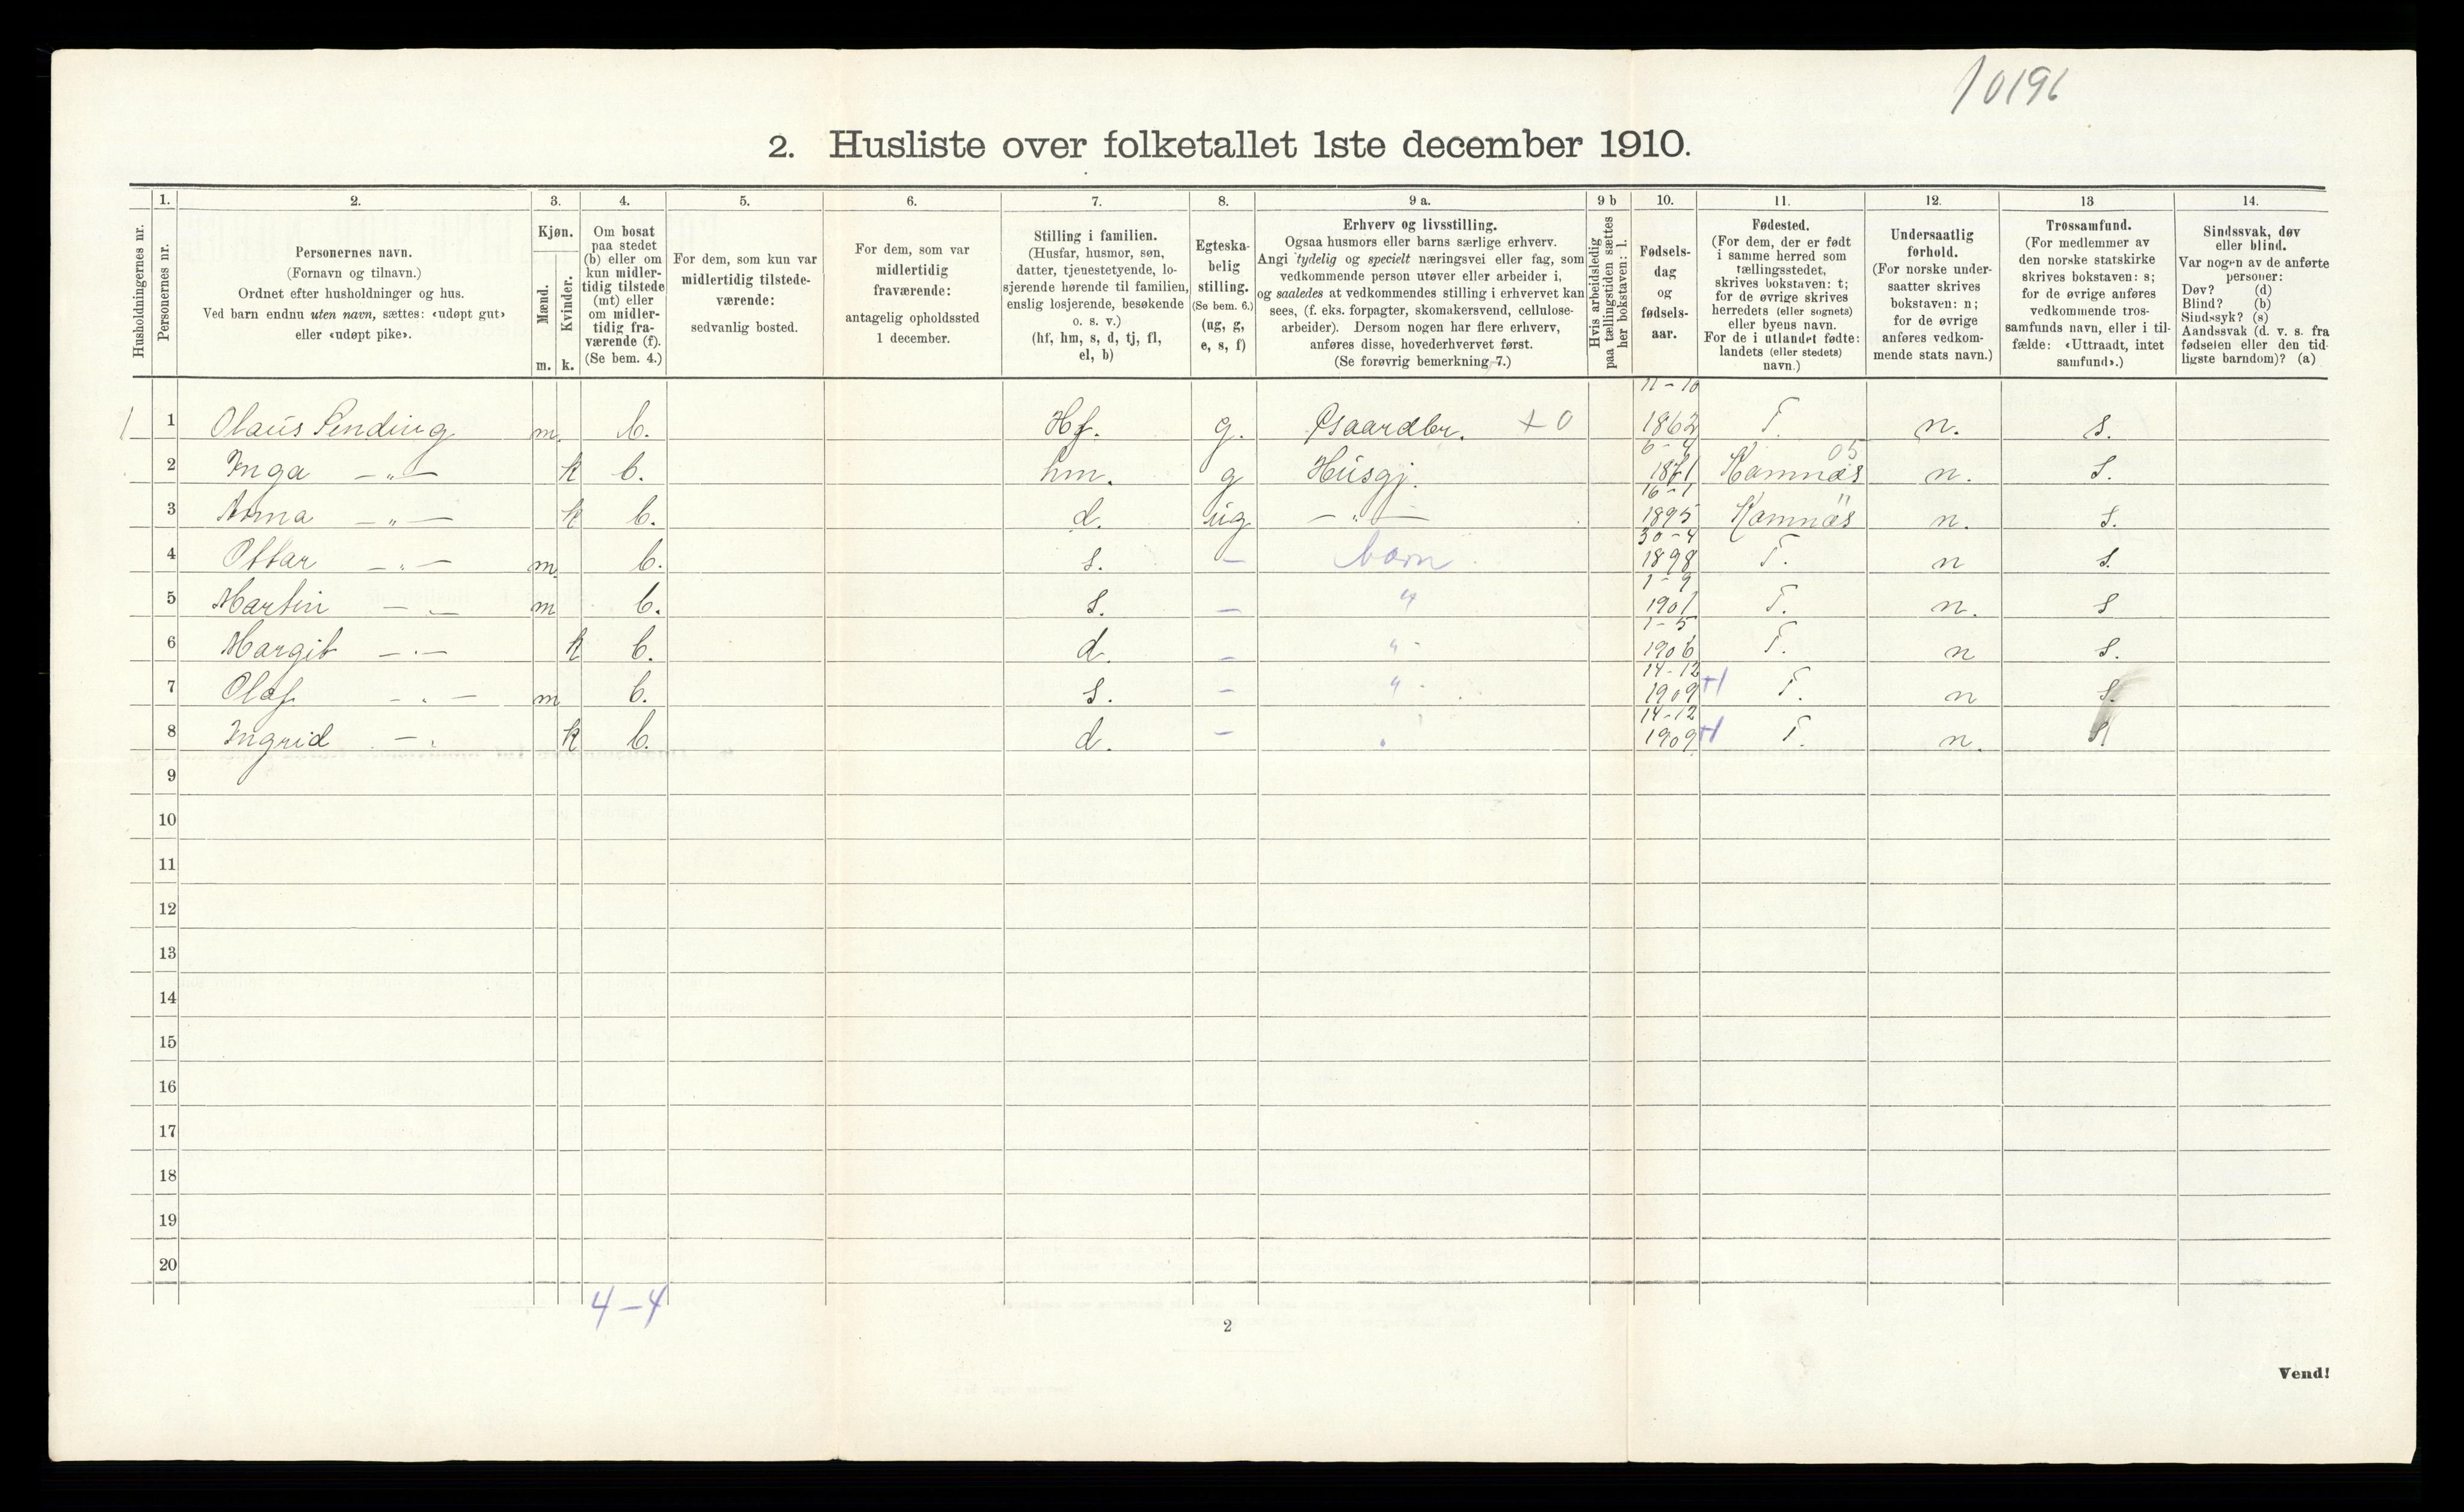 10196
2. Husliste over folketallet 1ste december 1910.
1. 2. 3. 4. 5. 6. 7. 8. 9 a. 9 b 10. 11. 12. 13 14.
Husholdningernes nr.
Personernes nr.
Personernes navn.
(Fornavn og tilnavn.)
Ordnet efter husholdninger og hus.
Ved barn endnu uten navn, sættes: «udøpt gut»
eller «udøpt pike».
Kjøn.
Mænd.
Kvinder.
m. k.
Om bosat
paa stedet
(b) eller om
kun midler-
tidig tilstede
(mt) eller
om midler-
tidig fra-
værende (f).
(Se bem. 4.)
For dem, som kun var
midlertidig tilstede-
værende:
sedvanlig bosted.
For dem, som var
midlertidig
fraværende:
antagelig opholdssted
1 december.
Stilling i familien.
(Husfar, husmor, søn,
datter, tjenestetyende, lo-
sjerende hørende til familien,
enslig losjerende, besøkende
o. s. v.)
(hf, hm, s, d, tj, fl,
el, b)
Egteska-
belig
stilling.
(Se bem. 6.)
(ug, g,
e, s, f)
Erhverv og livsstilling.
Ogsaa husmors eller barns særlige erhverv.
Angi tydelig og specielt næringsvei eller fag, som
vedkommende person utøver eller arbeider i,
og saaledes at vedkommendes stilling i erhvervet kan
sees, (f. eks. forpagter, skomakersvend, cellulose-
arbeider). Dersom nogen har flere erhverv,
anføres disse, hovederhvervet først.
(Se forøvrig bemerkning 7.)
Hvis arbeidsledig
paa tællingstiden sættes
her bokstaven: l.
Fødsels-
dag
og
fødsels-
aar.
Fødested.
(For dem, der er født
i samme herred som
tællingsstedet,
skrives bokstaven: t;
for de øvrige skrives
herredets (eller sognets)
eller byens navn.
For de i utlandet fødte:
landets (eller stedets)
navn.)
Undersaatlig
forhold.
(For norske under-
saatter skrives
bokstaven: n;
for de øvrige
anføres vedkom-
mende stats navn.)
Trossamfund.
(For medlemmer av
den norske statskirke
skrives bokstaven: s;
for de øvrige anføres
vedkommende tros-
samfunds navn, eller i til-
fælde: «Uttraadt, intet
samfund».)
Sindssvak, døv
eller blind.
Var nogen av de anførte
personer:
Døv? (d)
Blind? (b)
Sindssyk? (s)
Aandssvak (d. v. s. fra
fødselen eller den tid-
ligste barndom)? (a)
11-10
1 1 Olaus Sending m. b. Hf. g. Gaardbr. + 0 1862 T. n. s.
6-4 05
2 Inga —„— k b. hm. g Husgj. 1871 Hamnæs n. s.
16-1 "
3 Anna —„— k b. d. ug —„— 1895 Hamnæs n. s.
30-4
4 Ottar —„— m b. s. — barn 1898 T. n s.
1-9
5 Martin —„— m b. s. — " 1901 T. n. s
1-5
6 Margit —„— k b. d. — " 1906 T. n s.
14-12
7 Olaf —„— m b. s. — " 1909 +1 T. n s.
14-12
8 Ingrid —„ k b. d. — " 1909 +1 T. n. s
9
10
11
12
13
14
15
16
17
18
19
20
4-4
2
Vend!